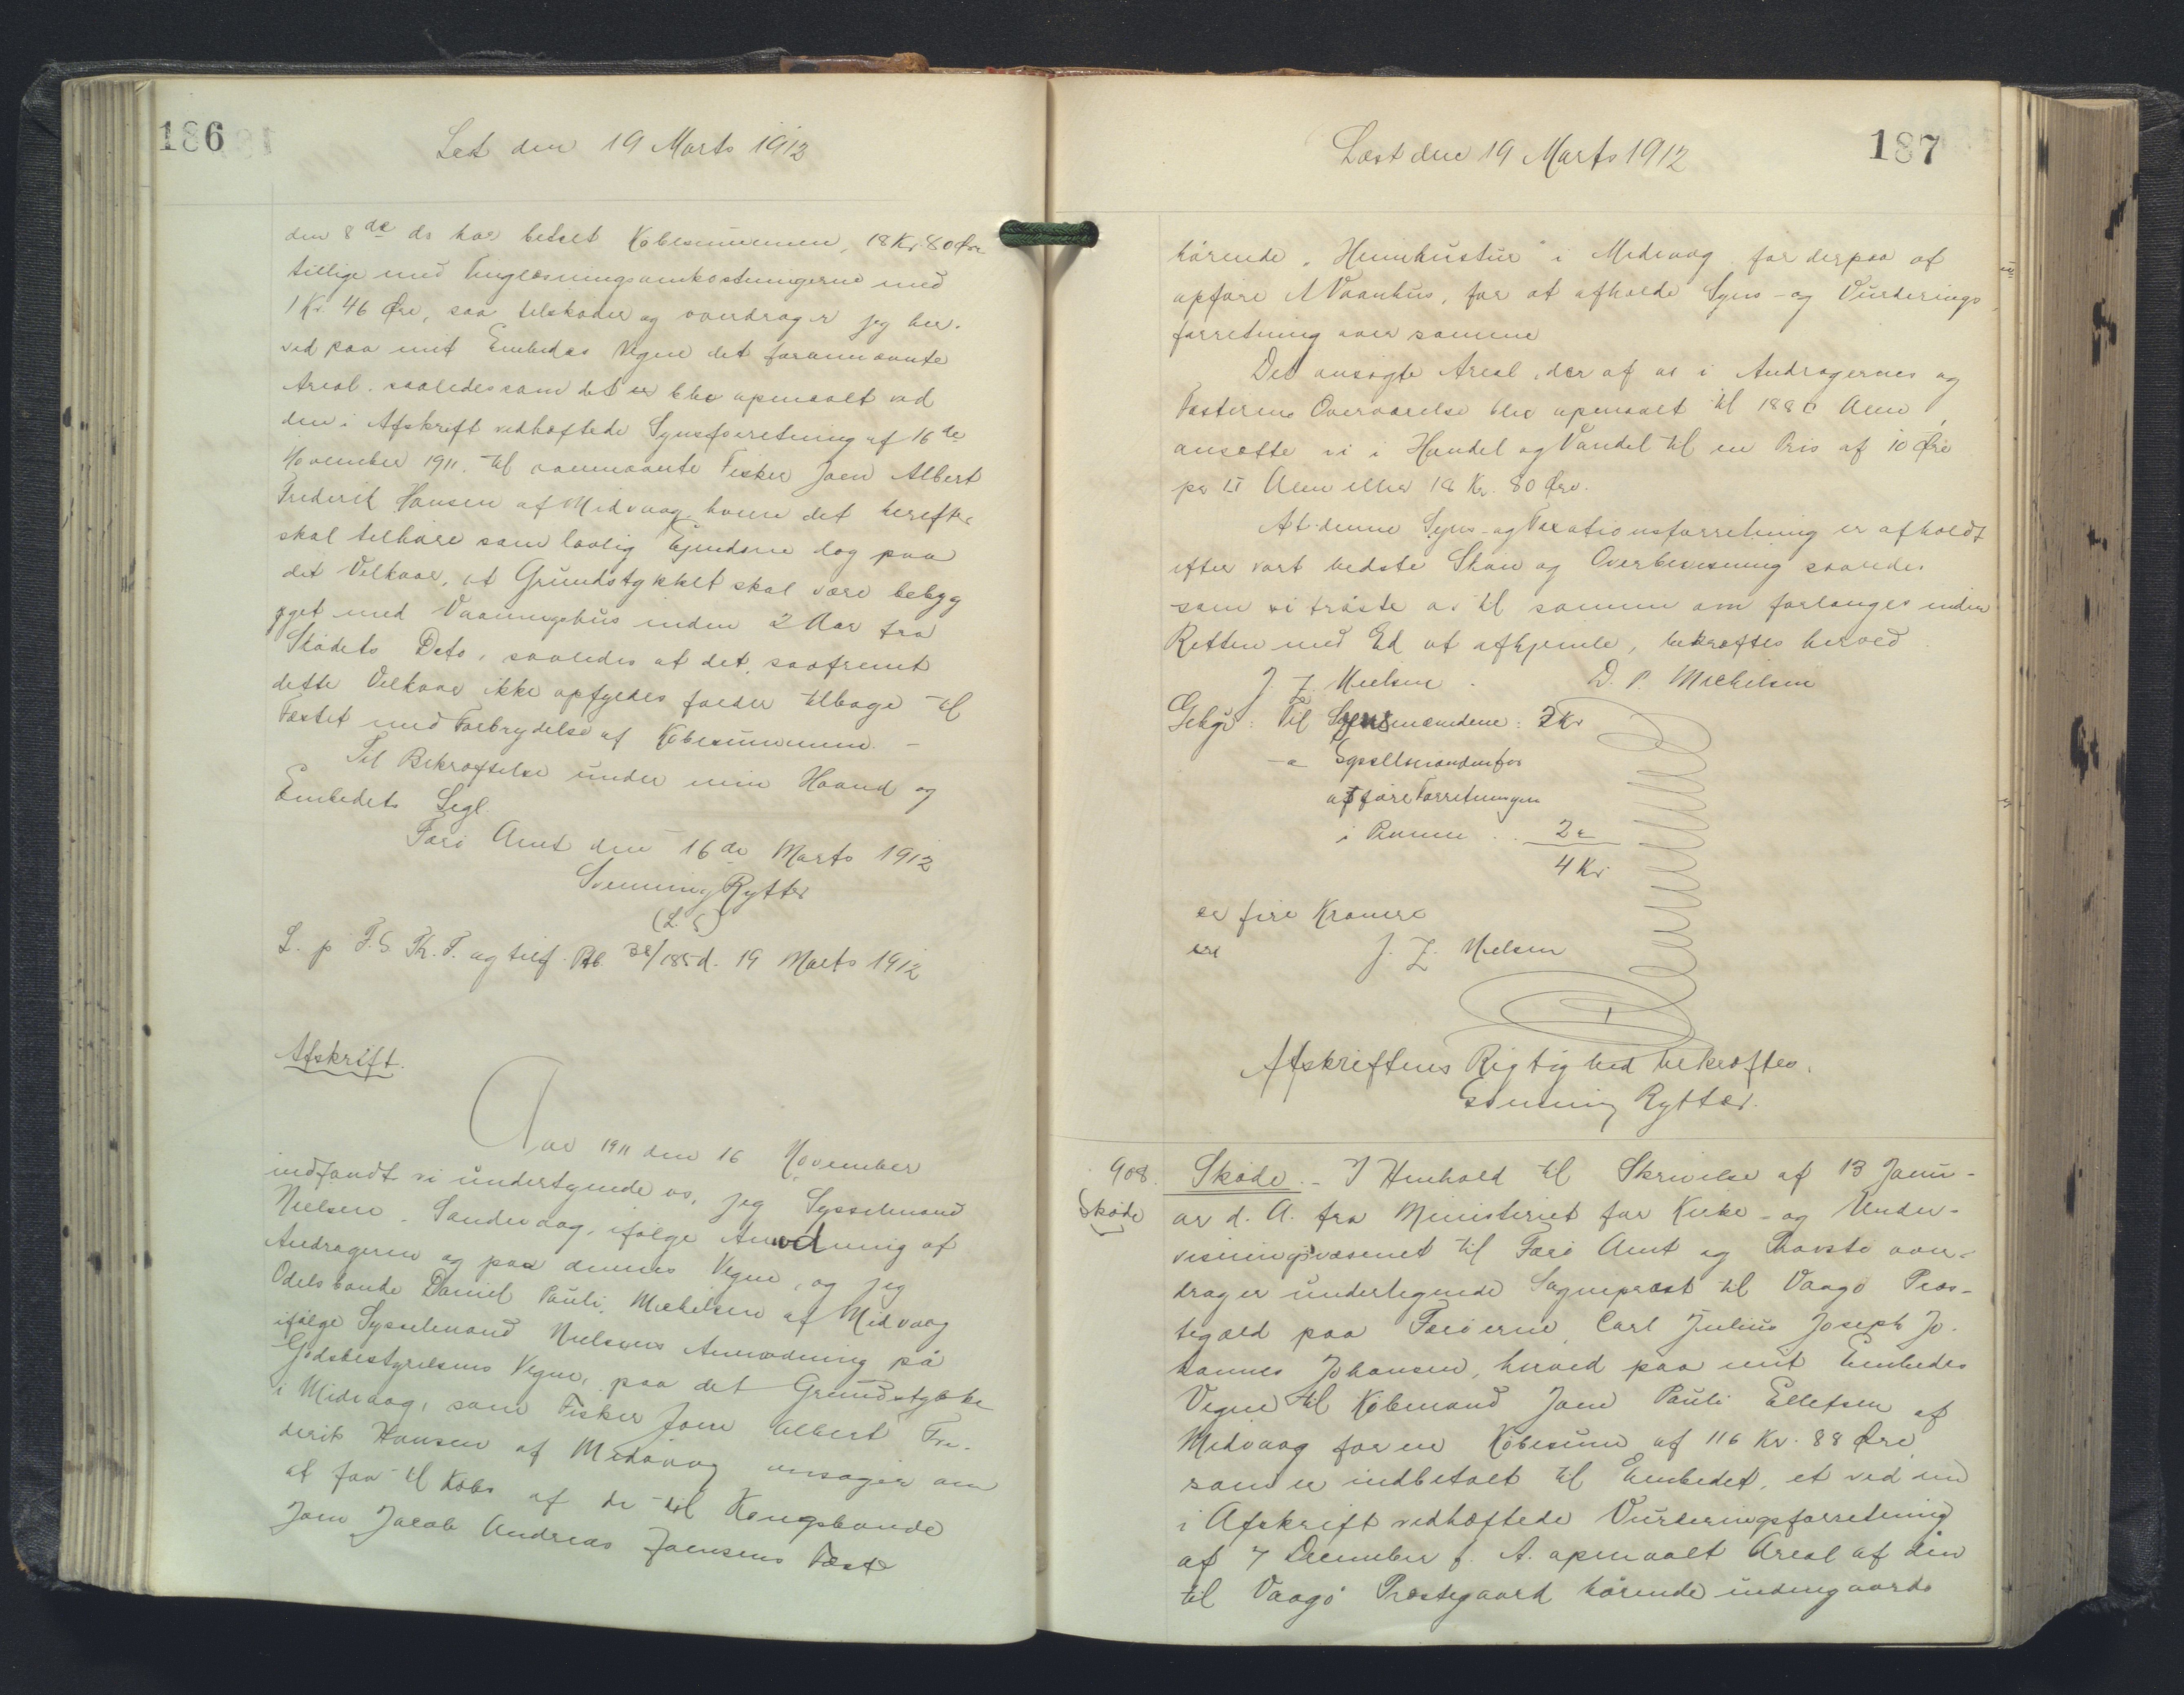 186
Læst den 19 Marts 1912
den 8de ds har betalt Købesummen, 18 Kr. 80 Øre
tillige med Tinglæsningsomkostningerne med
1 Kr. 46 Øre, saa tilskøder og overdrager jeg her-
ved paa mit Embedes Vegne det forannævnte
Areal, saaledes som det er blev opmaalt ved
den i Afskrift vedhæftede Synsforretning af 16de
November 1911, til ovennævnte Fisker Joen Albert
Frederik Hansen af Midvaag, hvem det herefter
skal tilhøre som lovlig Ejendom dog paa
det Vilkaar, at Grundstykket skal være bebyg
gget med Vaaningshus inden 2 Aar fra
Skødets Dato, saaledes at det, saafremt
dette Vilkaar ikke opfyldes falder tilbage til
Fæstet med Forbrydelse af Købesummen. -
Til Bekræftelse under min Haand og
Embedets Segl.
Færø Amt den 16de Marts 1912
Svenning Rytter
(L. S)
L. p F. S. Th. T. og tilf. Pb. 38/185 d. 19 Marts 1912
Afskrift.
Aar 1911 den 16 November
indfandt vi undertegnede os, jeg Sysselmand
Nielsen, Sandevaag, ifølge Anmodning af
Andrageren og paa dennes Vegne, og jeg
Odelsbonde Daniel Pauli Mikkelsen af Midvaag
ifølge Sysselmand Nielsens Anmodning på
Godsbestyrelsens Vegne, paa det Grundstykke
i Midvaag, som Fisker Joen Albert Fre-
derik Hansen af Midvaag ansøger om
at faa til Købs af de til Kongsbonde
Joen Jacob Andreas Joensens Fæste
187
Læst den 19 Marts 1912
hørende "Heimhustur" i Midvaag for derpaa at
opføre Vaanhus, for at afholde Syns- og Vurderings
forretning over samme
Det ansøgte Areal, der af os i Andragernes og
Fæsterens Overværelse blev opmaalt til 188 □ Alen,
ansatte vi i Handel og Vandel til en Pris af 10 Øre
pr □ Alen eller 18 Kr. 80 Øre.
At denne Syns- og Taxationsforretning er afholdt
efter vort bedste Skøn og Overbevisning saaledes
som vi trøste os til samme om forlanges inden
Retten med Ed at afhjemle, bekræftes herved.
J. Z. Nielsen. D. P. Mikkelsen
Gebyr: Til Synsmændene: 2 Kr
- " Sysselmanden for
at føre Forretningen
i Pennen . . 2 "
4 Kr
er fire Kroner
J. Z. Nielsen
Afskriftens Rigtighed bekræftes.
Svenning Rytter.
908.
Skøde
Skøde. - I Henhold til Skrivelse af 13 Janu-
ar d. A. fra Ministeriet for Kirke- og Under-
visningsvæsenet til Færø Amt og Provsti over-
drager undertegnede Sognepræst til Vaagø Præs-
tegæld paa Færøerne, Carl Julius Joseph Jo-
hannes Johansen, herved paa mit Embedes
Vegne til Købmand Joen Pauli Ellefsen af
Midvaag for en Købesum af 116 Kr. 88 Øre
som er indbetalt til Embedet, et ved en
i Afskrift vedhæftede Vurderingsforretning
af 7 December f. A. opmaalt Areal af den
til Vaagø Præstegaard hørende indengaards